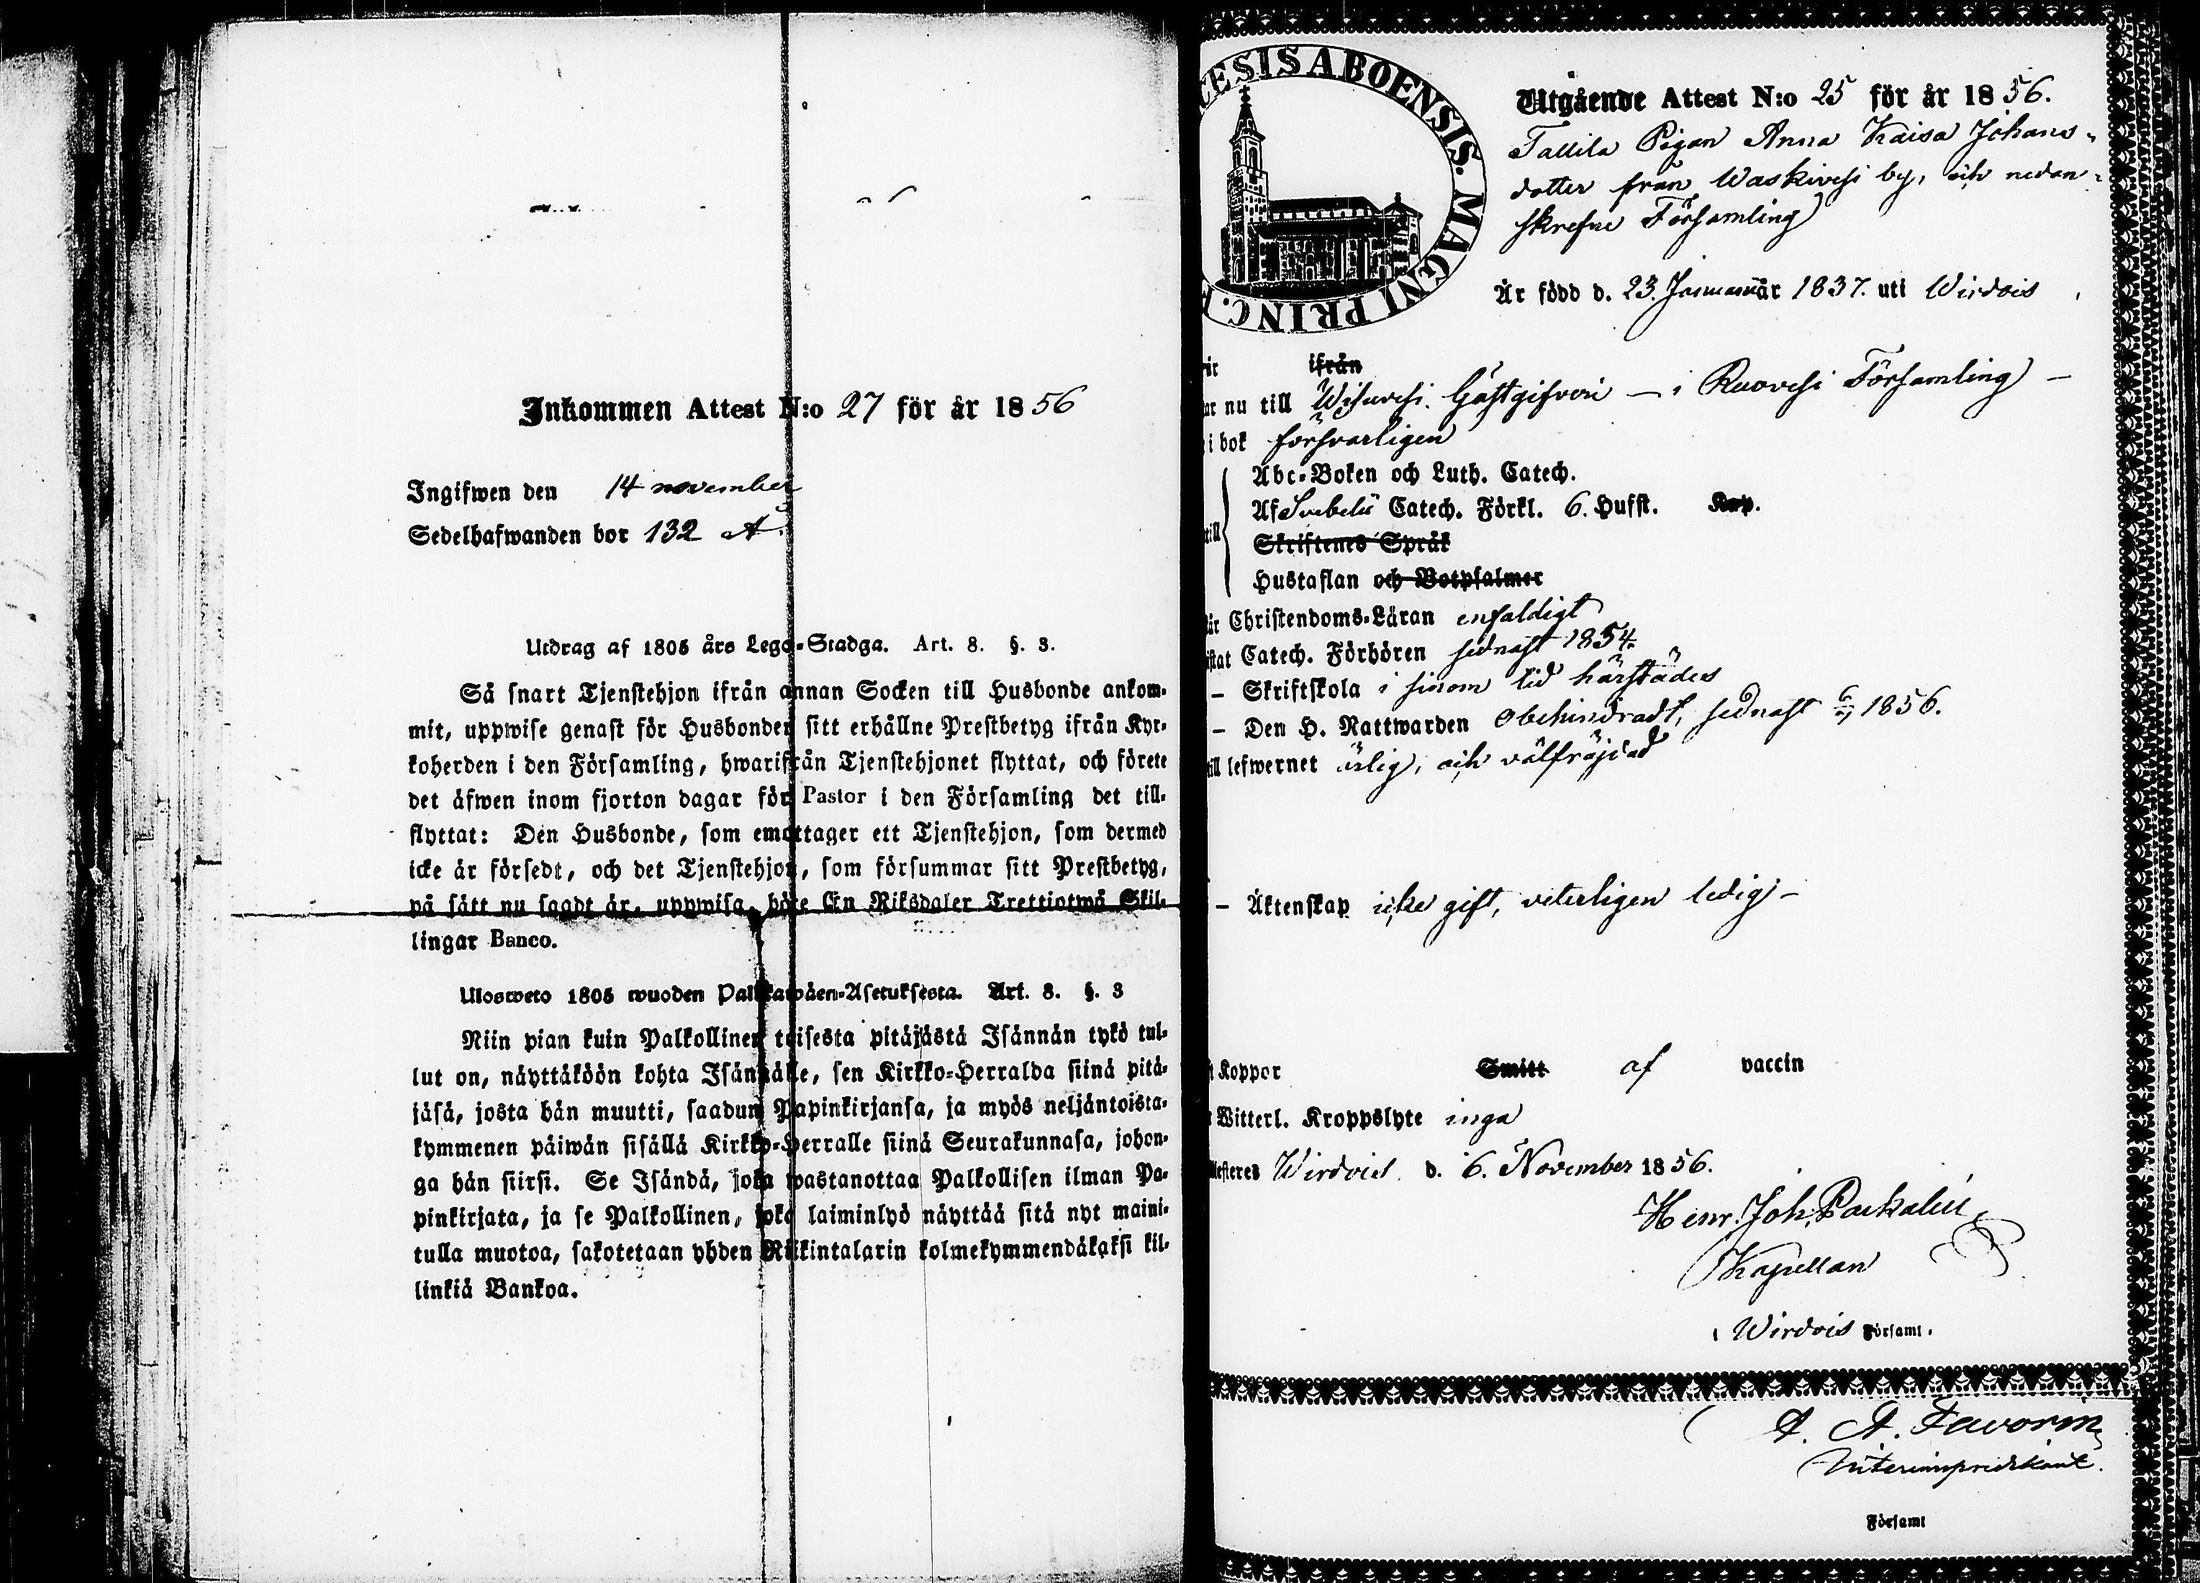 Inkommen Attest N:o 27 för år 1856
Ingifwen den 14 november
Sedelhafwanden bor 132 A.
Utdrag af 1805 års Lego-Stadga. Art. 8. §. 3.
Så snart Tjenstehjon ifrån annan Socken till Husbonde ankom-
mit, uppwise genast för Husbonden sitt erhållne Prestbetyg ifrån Kyr-
koherden i den Församling, hwarifrån Tjenstehjonet flyttat, och förete
det äfwen inom fjorton dagar för Pastor i den Församling det till-
flyttat: Den Husbonde, som emottager ett Tjenstehjon, som dermed
icke är försedt, och det Tjenstehjon, som försummar sitt Prestbetyg,
på sätt nu sagdt är, uppwisa, böte En Riksdaler Trettiotwå Skil-
lingar Banco.
Ulosweto 1805 wuoden Palkkawäen-Asetuksesta. Art. 8. §. 3
Niin pian kuin Palkollinen toisesta pitäjästä Isännän tykö tul-
lut on, näyttäköön kohta Isännälle, sen Kirkko-Herralda siinä pitä-
jäsä, josta hän muutti, saadun Papinkirjansa, ja myös neljäntoista-
kymmenen päiwän sisällä Kirkko-Herralle siinä Seurakunnasa, johon-
ga hän siirsi. Se Isändä, joka wastanottaa Palkollisen ilman Pa-
pinkirjata, ja se Palkollinen, joka laiminlyö näyttää sitä nyt maini-
tulla muotoa, sakotetaan yhden Riikintalarin kolmekymmendäkaksi kil-
linkiä Bankoa.
ESIS ABOENSIS. MAGNI PRINC. F
Utgående Attest N:o 25 för år 1856.
Tallila Pigan Anna Kaisa Johans-
dotter från Waskivesi by, och nedan-
skrefne Församling
Är född d. 23. Januarii år 1837. uti Wirdois
ifrån
nu till Wisuvesi Gästgifveri – i Ruovesi Församling –
i bok försvarligen
Abc-Boken och Luth. Catech.
Af Svebelii Catech. Förkl. 6. Hufst. Kap.
till
Skriftenes Språk
Hustaflan och Botpsalmer
Christendoms-Läran enfaldigt
istat Catech. Förhören sednast 1854.
– Skriftskola i sinom tid härstädes
– Den H. Nattwarden obehindradt, sednast 6/7 1856.
till lefwernet ärlig, och välfräjdad
– Äktenskap icke gift, veterligen ledig –
Koppor Smitt af vaccin
Witterl. Kroppslyte inga
Wirdois d. 6. November 1856.
Henr. Joh. Packalén
Kapellan
i Wirdois Församl.
A. A. Favorin
Interimspredikant.
Församl